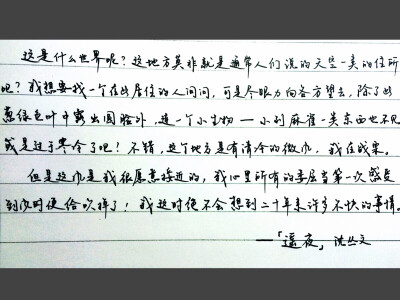 这是什么世界呢？这地方莫非就是通常人们说的天堂一类的住所
吧？我想要找一个在此居住的人问问，可是尽眼力向各方望去，除了些
葱绿色叶中露出圆脸外，连一个小生物——小到麻雀一类东西也不见
或是过于寒冷了吧！不错，这个地方是有清冷的微风，我在战栗。
但是这风是我很愿意接近的，我心里所有的委屈当第一次感受
到风时便给吹掉了！我这时绝不会想到二十年来许多不快的事情。
——「遥夜」沈从文